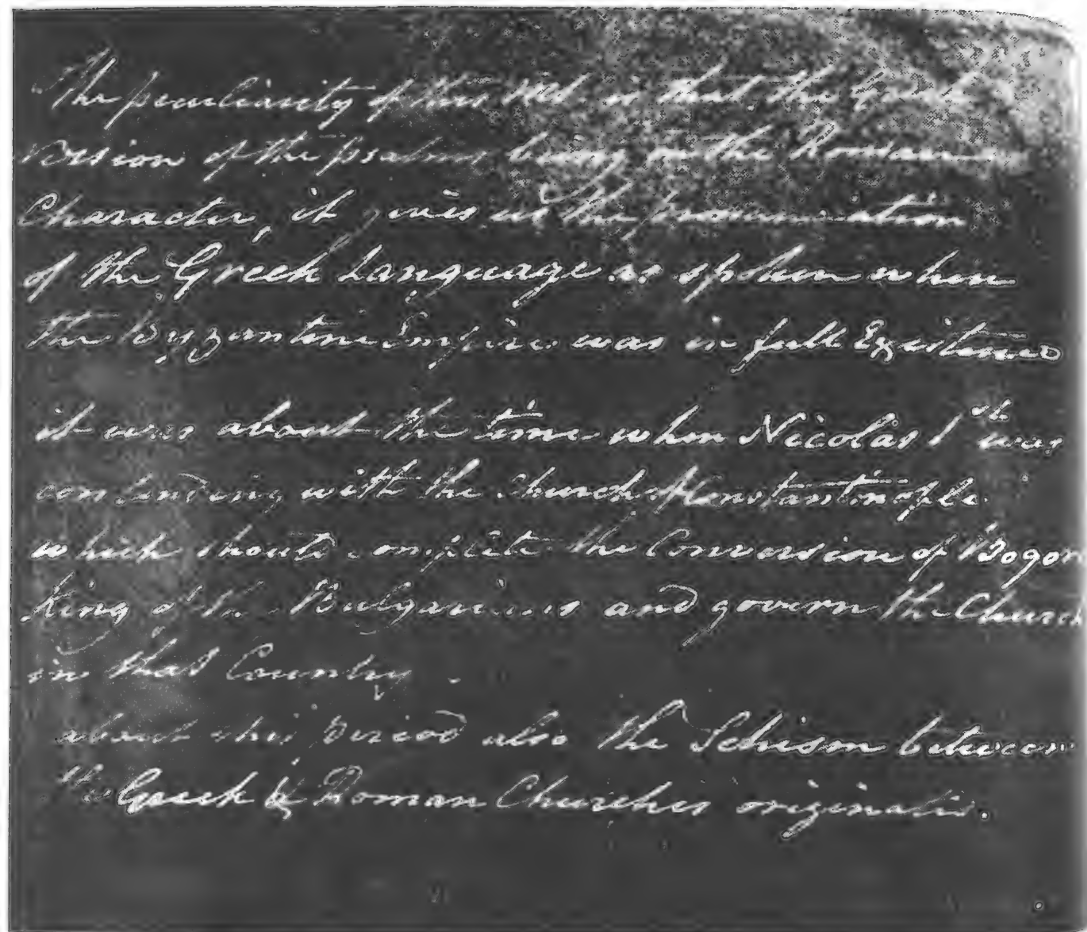 The peculiarity of this MS. is that the Greek
version of the psalms being in the Roman
Character, it gives us the pronunciation
of the Greek Language as spoken when
the Byzantine Empire was in full Existence
it was about the time when Nicolas 1st was
contending with the Church of Constantinople
which should complete the Conversion of Bogoris
King of the Bulgarians and govern the Church
in that Country.
about this period also the Schism between
the Greek & Roman Churches originated.